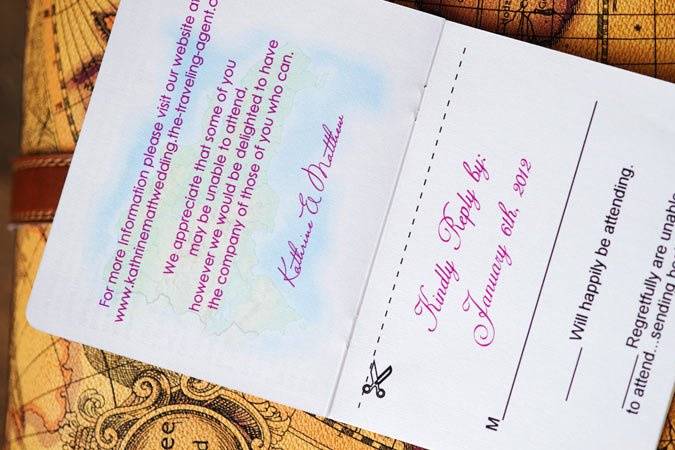 For more Information please visit our website
www.kathrinemattwedding.the-traveling-agent.
We appreciate that some of you
may be unable to attend,
however we would be delighted to have
the company of those of you who can.
Kathrine & Matthew
Kindly Reply by:
January 6th, 2012
M
Will happily be attending.
Regretfully are unable
to attend...sending